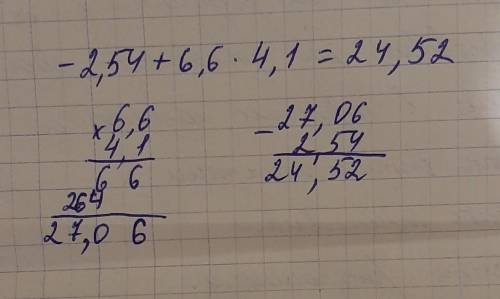 -2,54 + 6,6 · 4,1 = 24,52
× 6,6
4,1
6 6
264
27,0 6
- 27,06
2,54
24,52